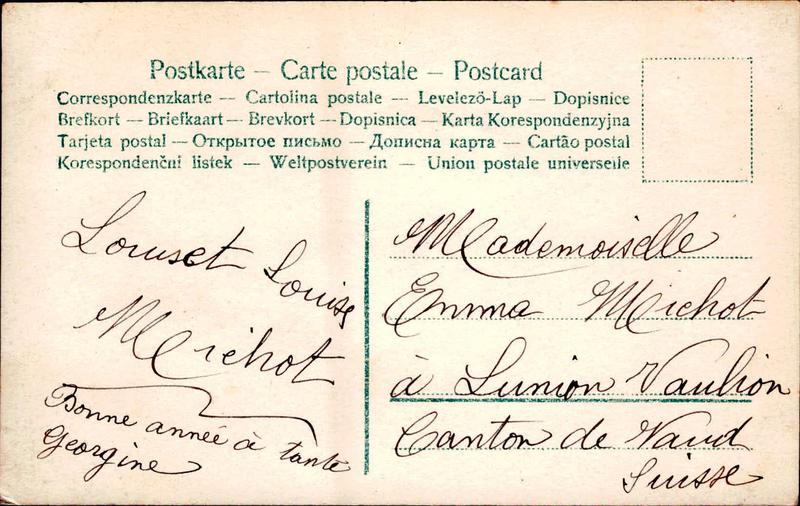 Postkarte – Carte postale – Postcard
Correspondenzkarte — Cartolina postale — Levelezō-Lap — Dopisnice
Brefkort — Briefkaart — Brevkort — Dopisnica — Karta Korespondenzyjna
Tarjeta postal — Открытое письмо — Дописна карта — Cartão postal
Korespondenčni listek — Weltpostverein — Union postale universelle
Louis et Louise
Michot
Bonne année à tante
Georgine
Mademoiselle
Emma Michot
à Lunion Vaulion
Canton de Vaud
Suisse